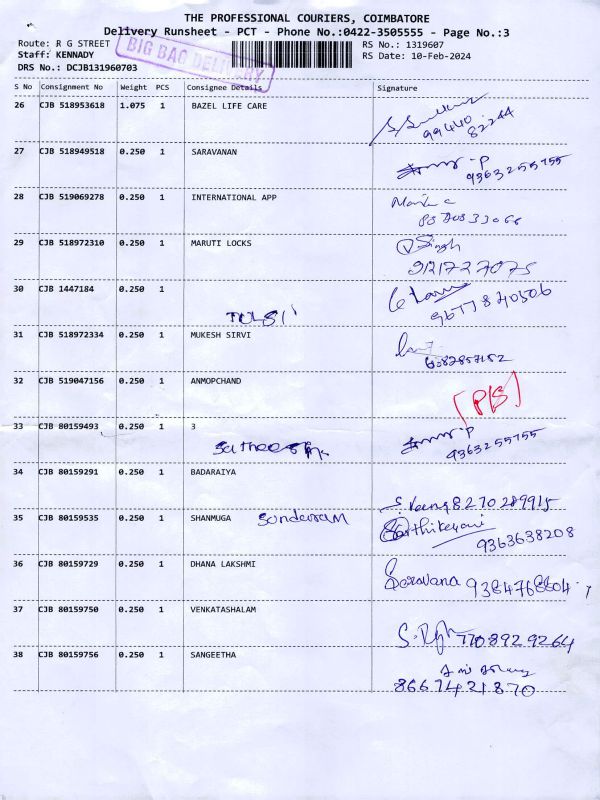 THE PROFESSIONAL COURIERS, COIMBATORE
Delivery Runsheet - PCT - Phone No.:0422-3505555 - Page No.:3
Route: R G STREET RS No.: 1319607
Staff: KENNADY RS Date: 10-Feb-2024
BIG BAG DELIVERY
DRS No.: DCJB131960703
S No Consignment No Weight PCS Consignee Details Signature
26 CJB 518953618 1.075 1 BAZEL LIFE CARE
99440 82244
27 CJB 518949518 0.250 1 SARAVANAN
9363255755
28 CJB 519069278 0.250 1 INTERNATIONAL APP
29 CJB 518972310 0.250 1 MARUTI LOCKS Singh
30 CJB 1447184 0.250 1
TULSI
31 CJB 518972334 0.250 1 MUKESH SIRVI
32 CJB 519047156 0.250 1 ANMOPCHAND
33 CJB 80159493 0.250 1 3
9363255755
34 CJB 80159291 0.250 1 BADARAIYA
8270289915
35 CJB 80159535 0.250 1 SHANMUGA Sundaram
9363638208
36 CJB 80159729 0.250 1 DHANA LAKSHMI
Saravana 9384768604
37 CJB 80159750 0.250 1 VENKATASHALAM
7708929264
38 CJB 80159756 0.250 1 SANGEETHA
8667421870